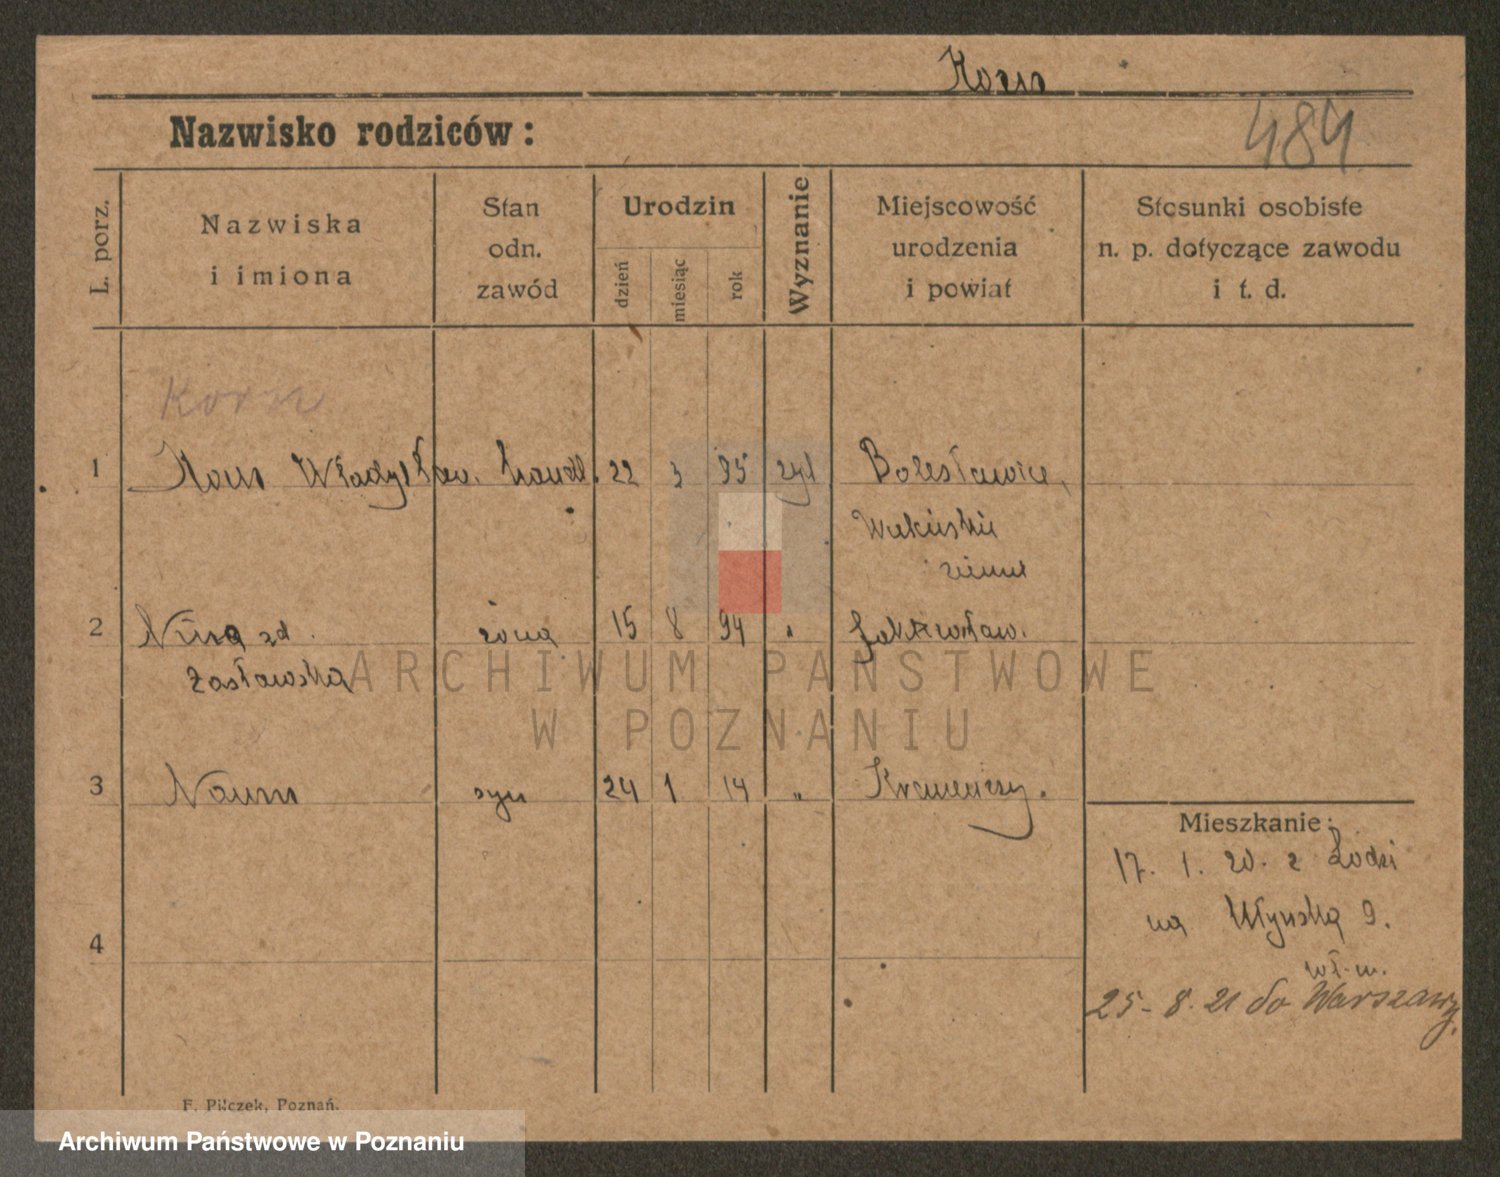 Korn
Nazwisko rodziców:
484
L. porz.
Nazwiska
i imiona
Stan
odn.
zawód
Urodzin
dzień
miesiąc
rok
Wyznanie
Miejscowość
urodzenia
i powiat
Stosunki osobiste
n. p. dotyczące zawodu
i t. d.
Korn
1 Korn Władysław. handl. 22 3 95 Bolesławice,
2 Nina zd. żona 15 8 94 "
Zasłowską
3 Naum syn 24 1 14 "
4
Mieszkanie:
17. 1. 20. z Łodzi
na 9.
wł. m.
25-8.21 do Warszawy.
F. Pilczek, Poznań.
ARCHIWUM PAŃSTWOWE
W POZNANIU
Archiwum Państwowe w Poznaniu